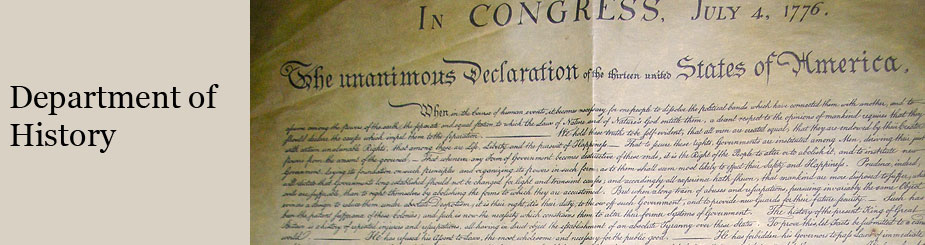 Department of
History
In CONGRESS, July 4, 1776.
The unanimous Declaration of the thirteen united States of America,
When in the Course of human events, it becomes necessary for one people to dissolve the political bands which have connected them with another, and to
assume among the powers of the earth, the separate and equal station to which the Laws of Nature and of Nature's God entitle them, a decent respect to the opinions of mankind requires that they
should declare the causes which impel them to the separation. We hold these truths to be self-evident, that all men are created equal, that they are endowed by their Creator
with certain unalienable Rights, that among these are Life, Liberty and the pursuit of Happiness. — That to secure these rights, Governments are instituted among Men, deriving their just
powers from the consent of the governed, — That whenever any Form of Government becomes destructive of these ends, it is the Right of the People to alter or to abolish it, and to institute new
Government, laying its foundation on such principles and organizing its powers in such form, as to them shall seem most likely to effect their Safety and Happiness. Prudence, indeed,
will dictate that Governments long established should not be changed for light and transient causes; and accordingly all experience hath shewn, that mankind are more disposed to suffer, while
evils are sufferable, than to right themselves by abolishing the forms to which they are accustomed. But when a long train of abuses and usurpations, pursuing invariably the same Object
evinces a design to reduce them under absolute Despotism, it is their right, it is their duty, to throw off such Government, and to provide new Guards for their future security. — Such has
been the patient sufferance of these Colonies; and such is now the necessity which constrains them to alter their former Systems of Government. The history of the present King of Great
Britain is a history of repeated injuries and usurpations, all having in direct object the establishment of an absolute Tyranny over these States. To prove this, let Facts be submitted to a candid
world. He has refused his Assent to Laws, the most wholesome and necessary for the public good. He has forbidden his Governors to pass Laws of immediate